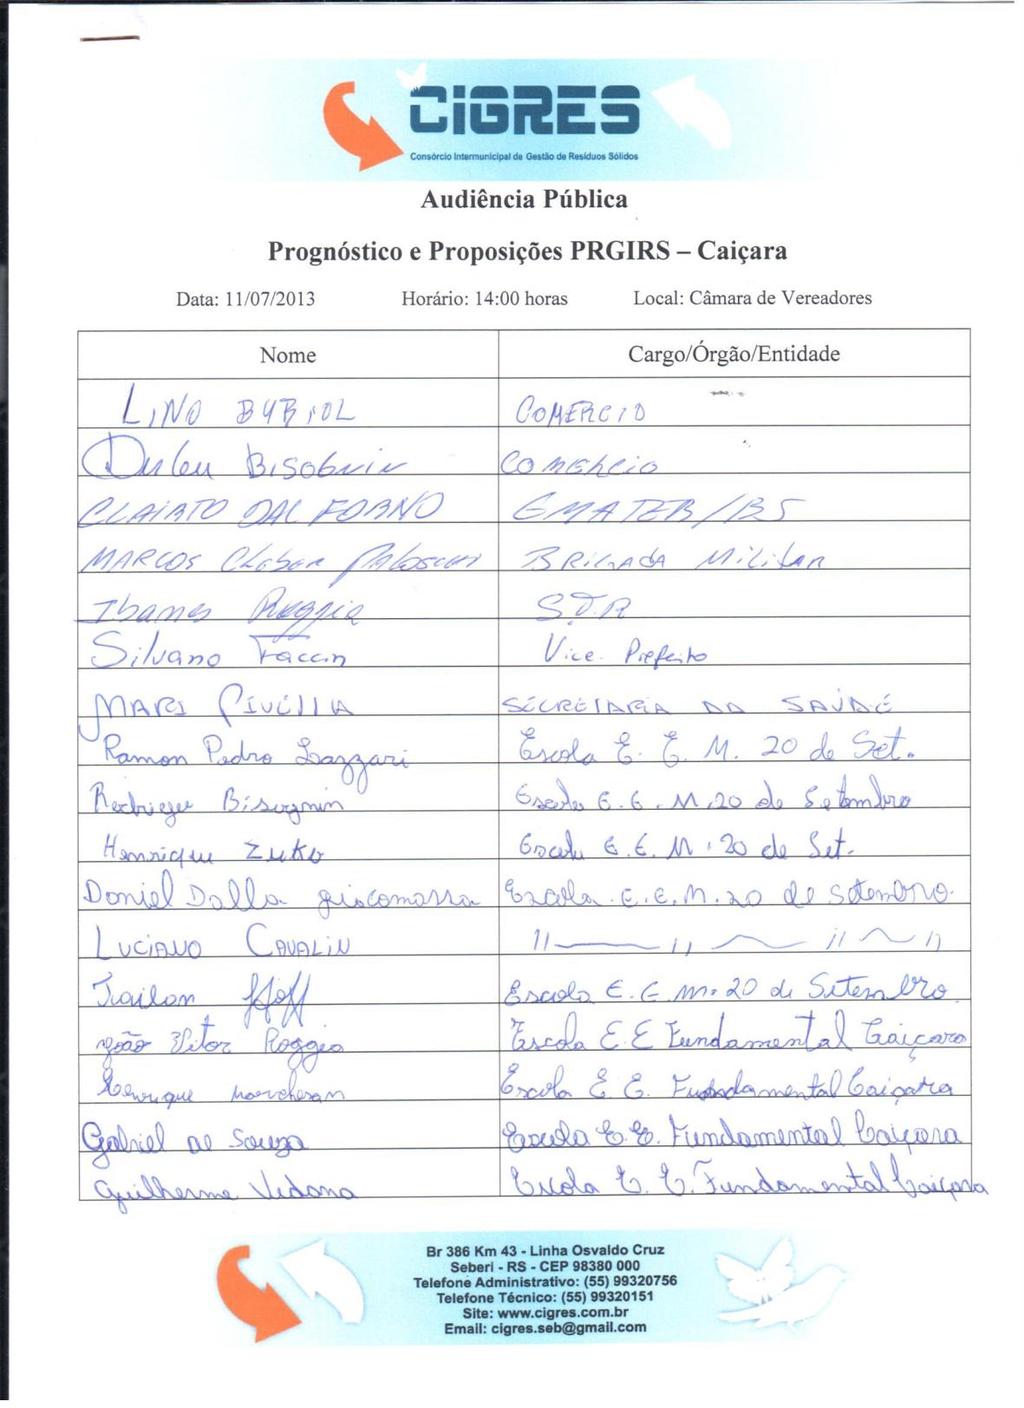 CIGRES
Consórcio Intermunicipal de Gestão de Resíduos Sólidos
Audiência Pública
Prognóstico e Proposições PRGIRS – Caiçara
Data: 11/07/2013 Horário: 14:00 horas Local: Câmara de Vereadores
Nome Cargo/Órgão/Entidade
LINO COMERCIO
BISOGNIN COMERCIO
CLAIRTO DAL FORNO EMATER/RS
MARCOS BRIGADA MILITAR
Ibanes S.D.R
Silvano Faccin Vice. Prefeito
MARI SECRETARIA DA SAÚDE
Ramon Pedro Lazzari Escola E. E. M. 20 de Set.
Bisognin Escola E. E. M. 20 de Setembro
Henrique Escola E. E. M. 20 de Set.
Daniel Dalla giacomassa Escola. E. E. M. 20 de Setembro.
LUCIANO CAVALIN 11 — 11 — 11 — 11
Hoff Escola E. E. M. 20 de Setembro.
João Vitor Roggia Escola E E Fundamental Caiçara
Henrique Marchesan Escola E. E. Fundamental Caiçara
Gabriel de Souza Escola E. E. Fundamental Caiçara
Guilherme Escola E. E. Fundamental Caiçara
Br 386 Km 43 - Linha Osvaldo Cruz
Seberi - RS - CEP 98380 000
Telefone Administrativo: (55) 99320756
Telefone Técnico: (55) 99320151
Site: www.cigres.com.br
Email: cigres.seb@gmail.com